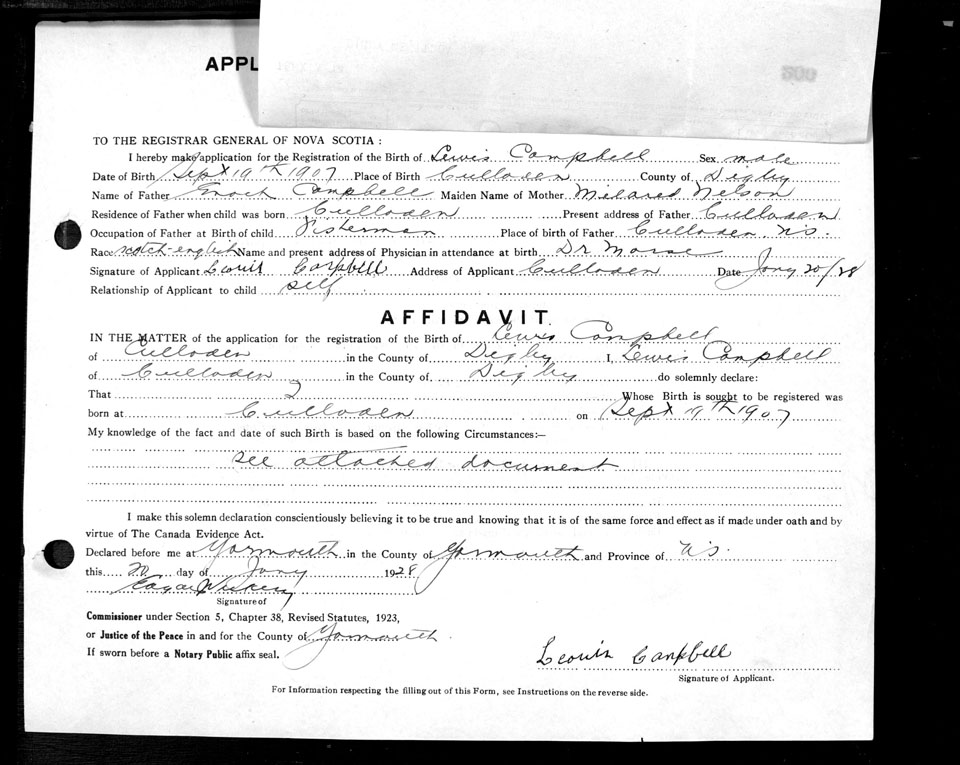 APPL
TO THE REGISTRAR GENERAL OF NOVA SCOTIA :
I hereby make application for the Registration of the Birth of Lewis Campbell Sex male
Date of Birth Sept 19th 1907 Place of Birth Culloden County of Digby
Name of Father Enoch Campbell Maiden Name of Mother Mildred Nelson
Residence of Father when child was born Culloden Present address of Father Culloden
Occupation of Father at Birth of child Fisherman Place of birth of Father Culloden N.S.
Race scotch-english Name and present address of Physician in attendance at birth Dr Morse
Signature of Applicant Campbell Address of Applicant Culloden Date Jany 20/28
Relationship of Applicant to child self
AFFIDAVIT
IN THE MATTER of the application for the registration of the Birth of Lewis Campbell
of Culloden in the County of Digby I, Lewis Campbell
of Culloden in the County of Digby do solemnly declare:
That I Whose Birth is sought to be registered was
born at Culloden on Sept 19th 1907
My knowledge of the fact and date of such Birth is based on the following Circumstances:—
see attached document
I make this solemn declaration conscientiously believing it to be true and knowing that it is of the same force and effect as if made under oath and by
virtue of The Canada Evidence Act.
Declared before me at Yarmouth in the County of Yarmouth and Province of N.S.
this 20 day of Jany 1928
Signature of
Commissioner under Section 5, Chapter 38, Revised Statutes, 1923,
or Justice of the Peace in and for the County of Yarmouth
If sworn before a Notary Public affix seal.
Campbell
Signature of Applicant.
For Information respecting the filling out of this Form, see Instructions on the reverse side.